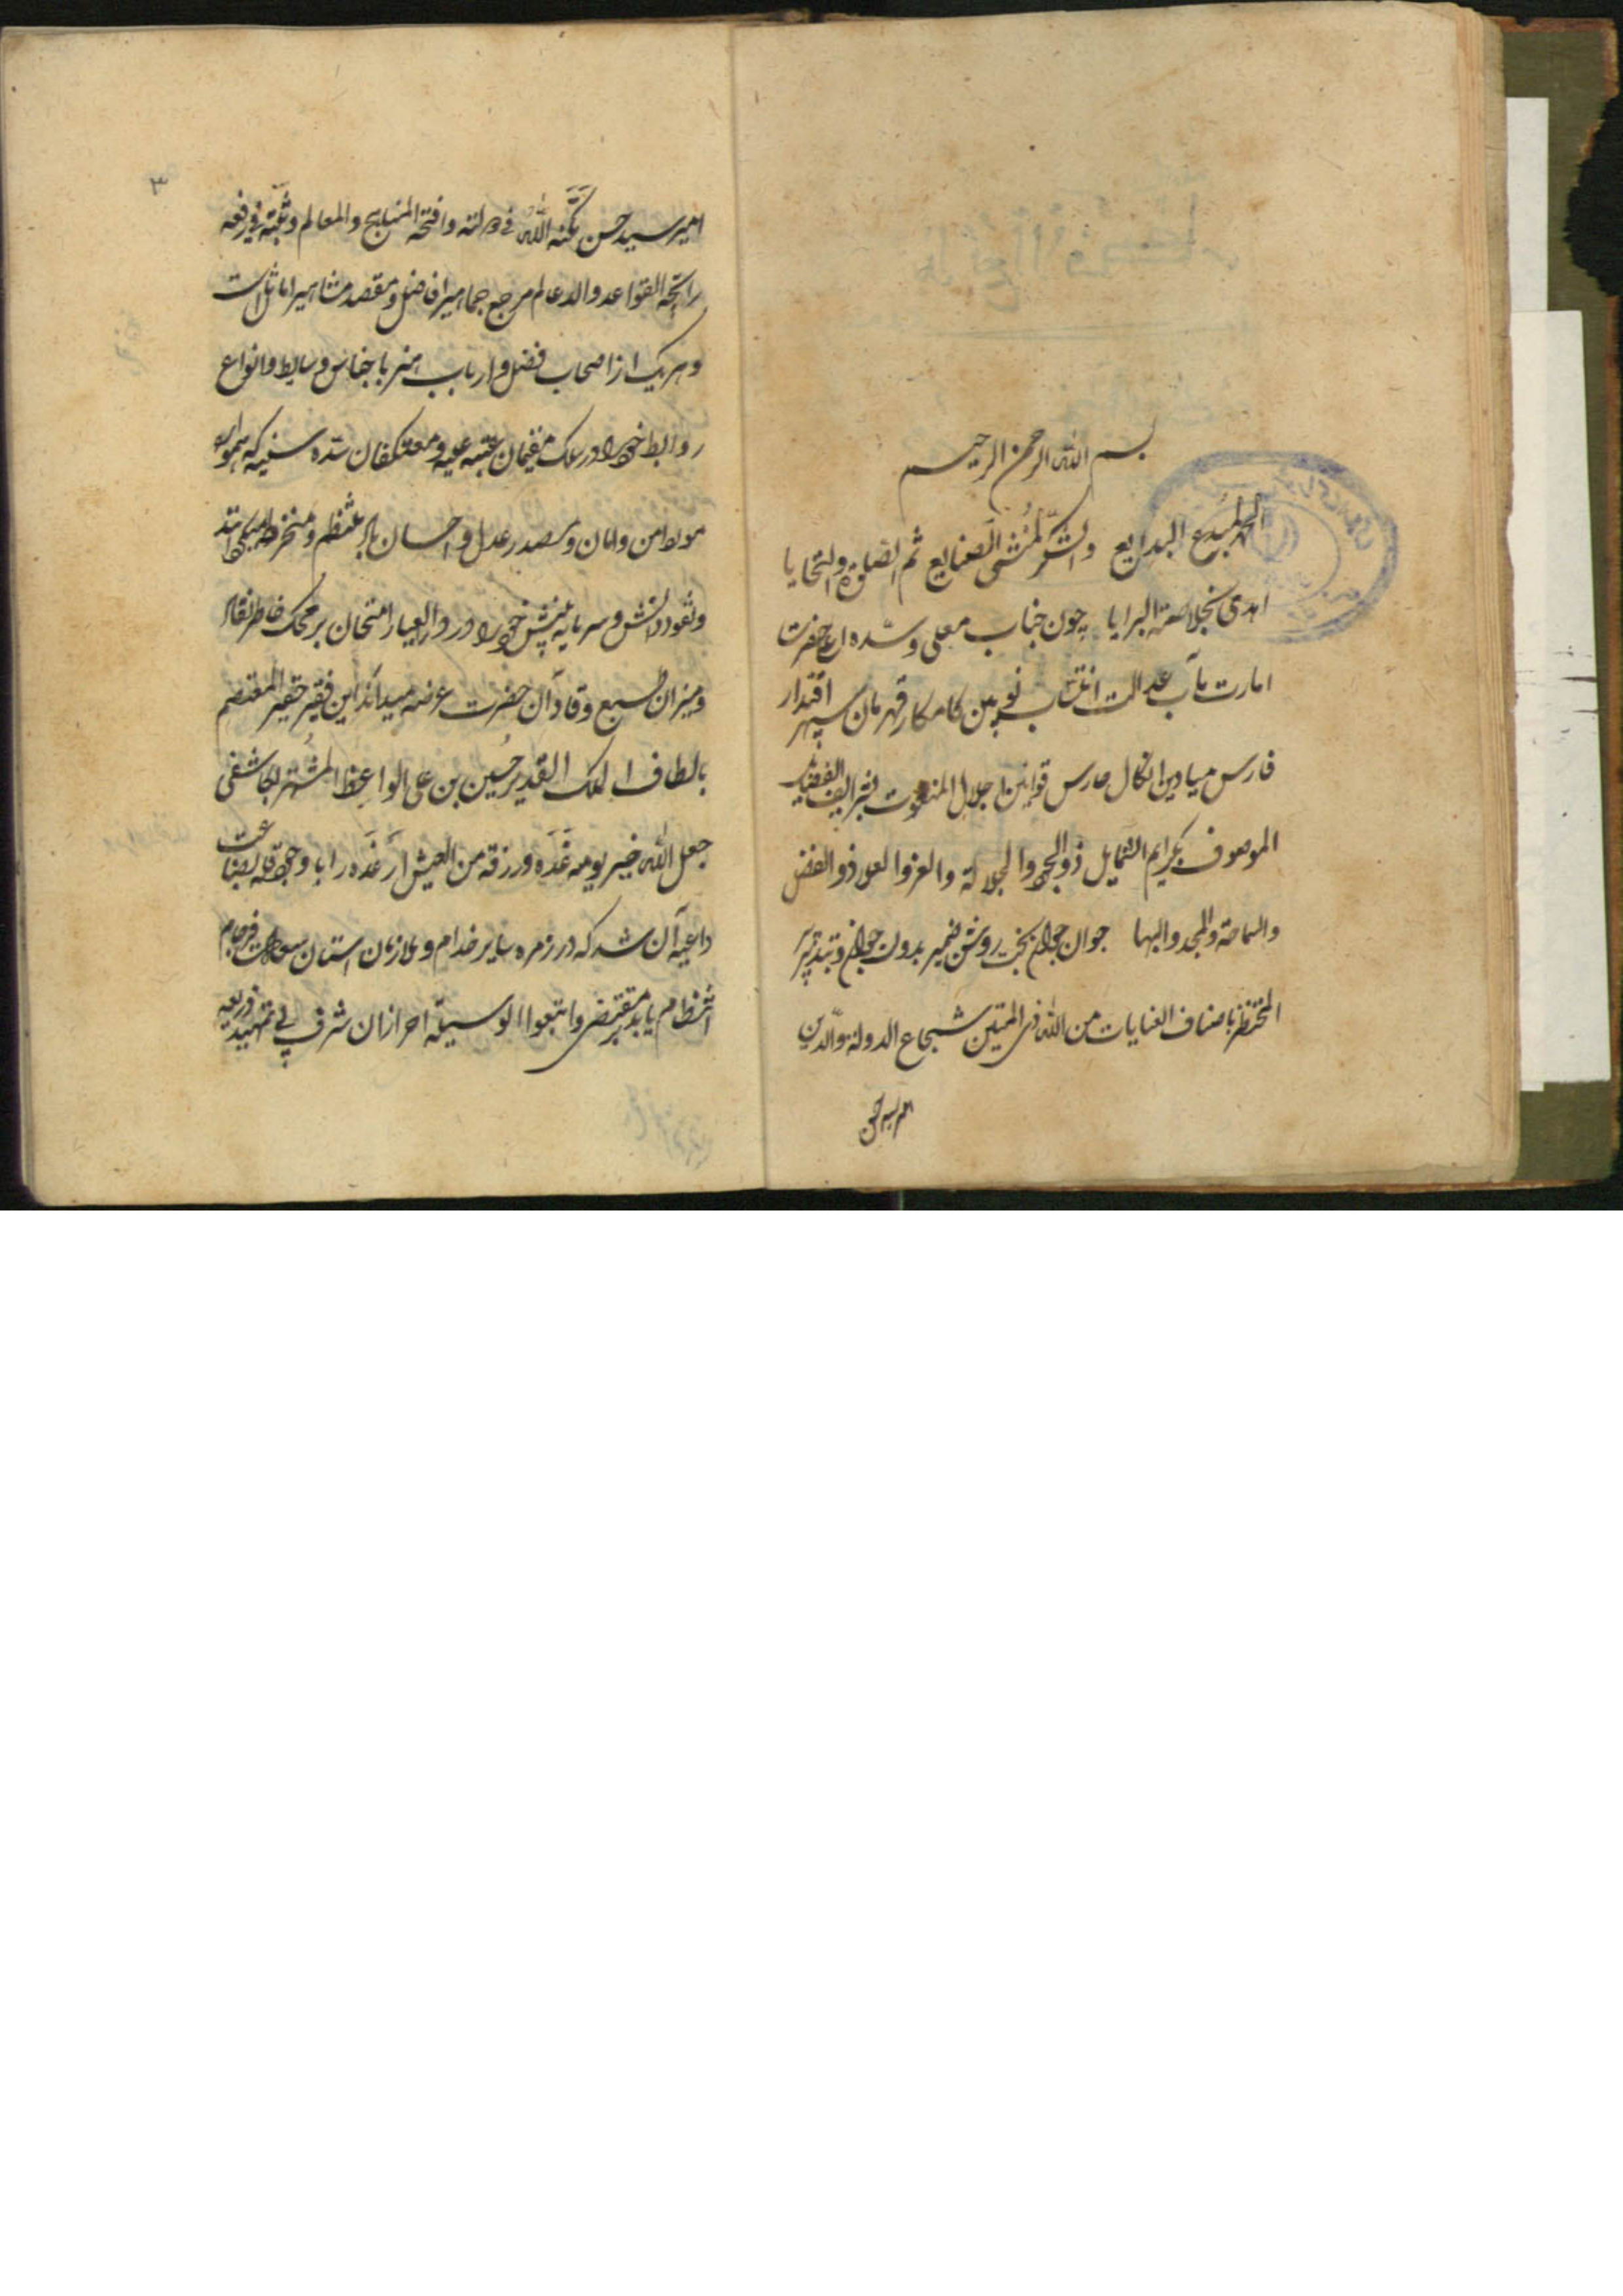 بسم الله الرحمن الرحیم
الحمد لمبدع البدایع والشکر لمنشی الصنایع ثم الصلوة والتحایا
اهدی لخلاصة البرایا چون جناب معلی وسده اعلی حضرت
امارت مآب عدالت انتساب نویین کامکار قهرمان سپهر اقتدار
فارس میادین الکمال حارس قوانین الاجلال المنعوت بشرایف الفضایل
الموصوف بکرایم الشمایل ذو الجود والجلالة والعز والعلی ذو الفضل
والسماحة والمجد والبها جوان جوان بخت روشن ضمیر بدولت جوان وبتدبیر پیر
المحتظ باصناف العنایات من الله ذی المتین شجاع الدولة والدین
امیر سید حسن
۳
امیر سید حسن مکنه الله فی دولته وافتحه المناهج والمعالم وثبته فی رفعه
راسخة القواعد والدعایم مرجع جماهیر افاضل ومقصد مشاهیر اماثل است
وهریک از اصحاب فضل وارباب هنر باجناس وسایط وانواع
روابط خود را در سلک مقیمان عتبه علیه ومعتکفان سده سنیه که همواره
مورد امن وامان ومصدر عدل واحسان باد منتظم ومنخرط میگردانند
ونقود دانش وسرمایه بینش خود را در دار العیار امتحان بر محک خاطر نقاد
ومیزان طبع وقاد آن حضرت عرضه میدارند این فقیر حقیر المعتصم
بالطاف الملک القدیر حسین بن علی الواعظ المشتهر بالکاشفی
جعل الله خیر یومیه غده ورزقه من العیش ارغده را با وجود قلة بضاعت
داعیه آن شد که در زمره سایر خدام وملازمان آستان سعادت فرجام
انتظام یابد بمقتضی وابتغوا الیه الوسیلة احراز آن شرف بی تمهید ذریعه